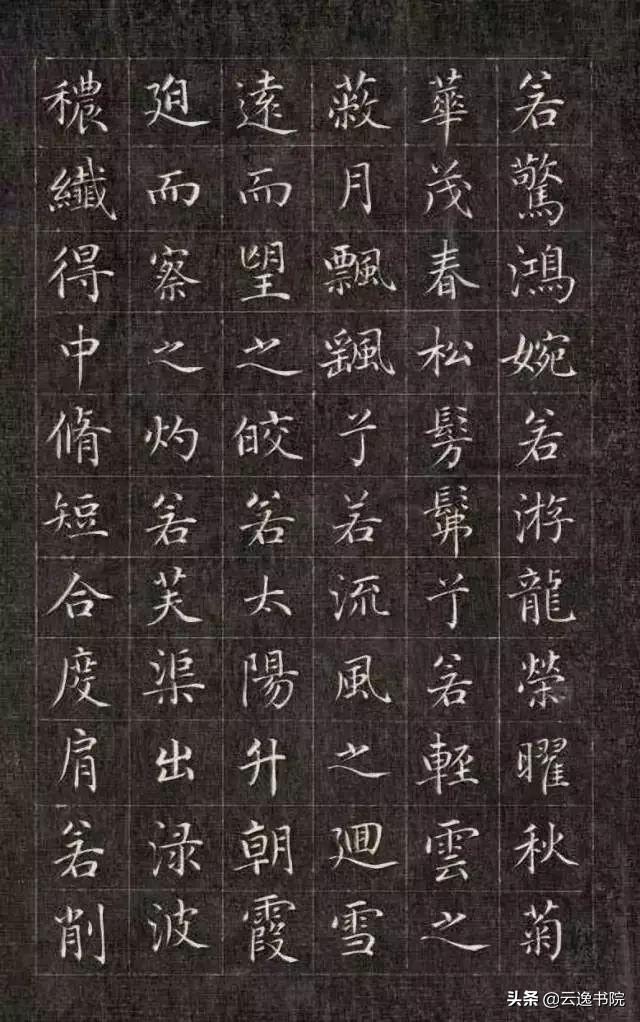 若驚鴻婉若游龍榮曜秋菊
華茂春松髣髴兮若輕雲之
蔽月飄颻兮若流風之迴雪
遠而望之皎若太陽升朝霞
迫而察之灼若芙渠出淥波
穠纖得中脩短合度肩若削
头条 @云逸书院